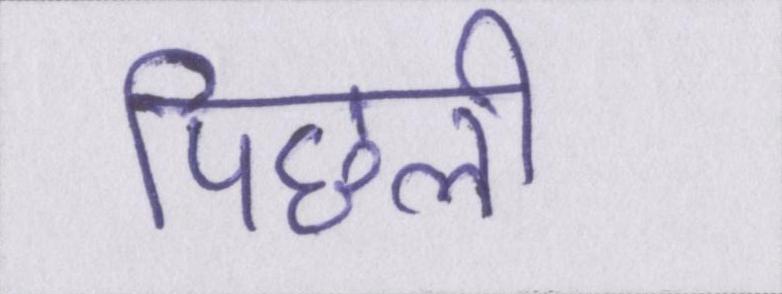 पिछली